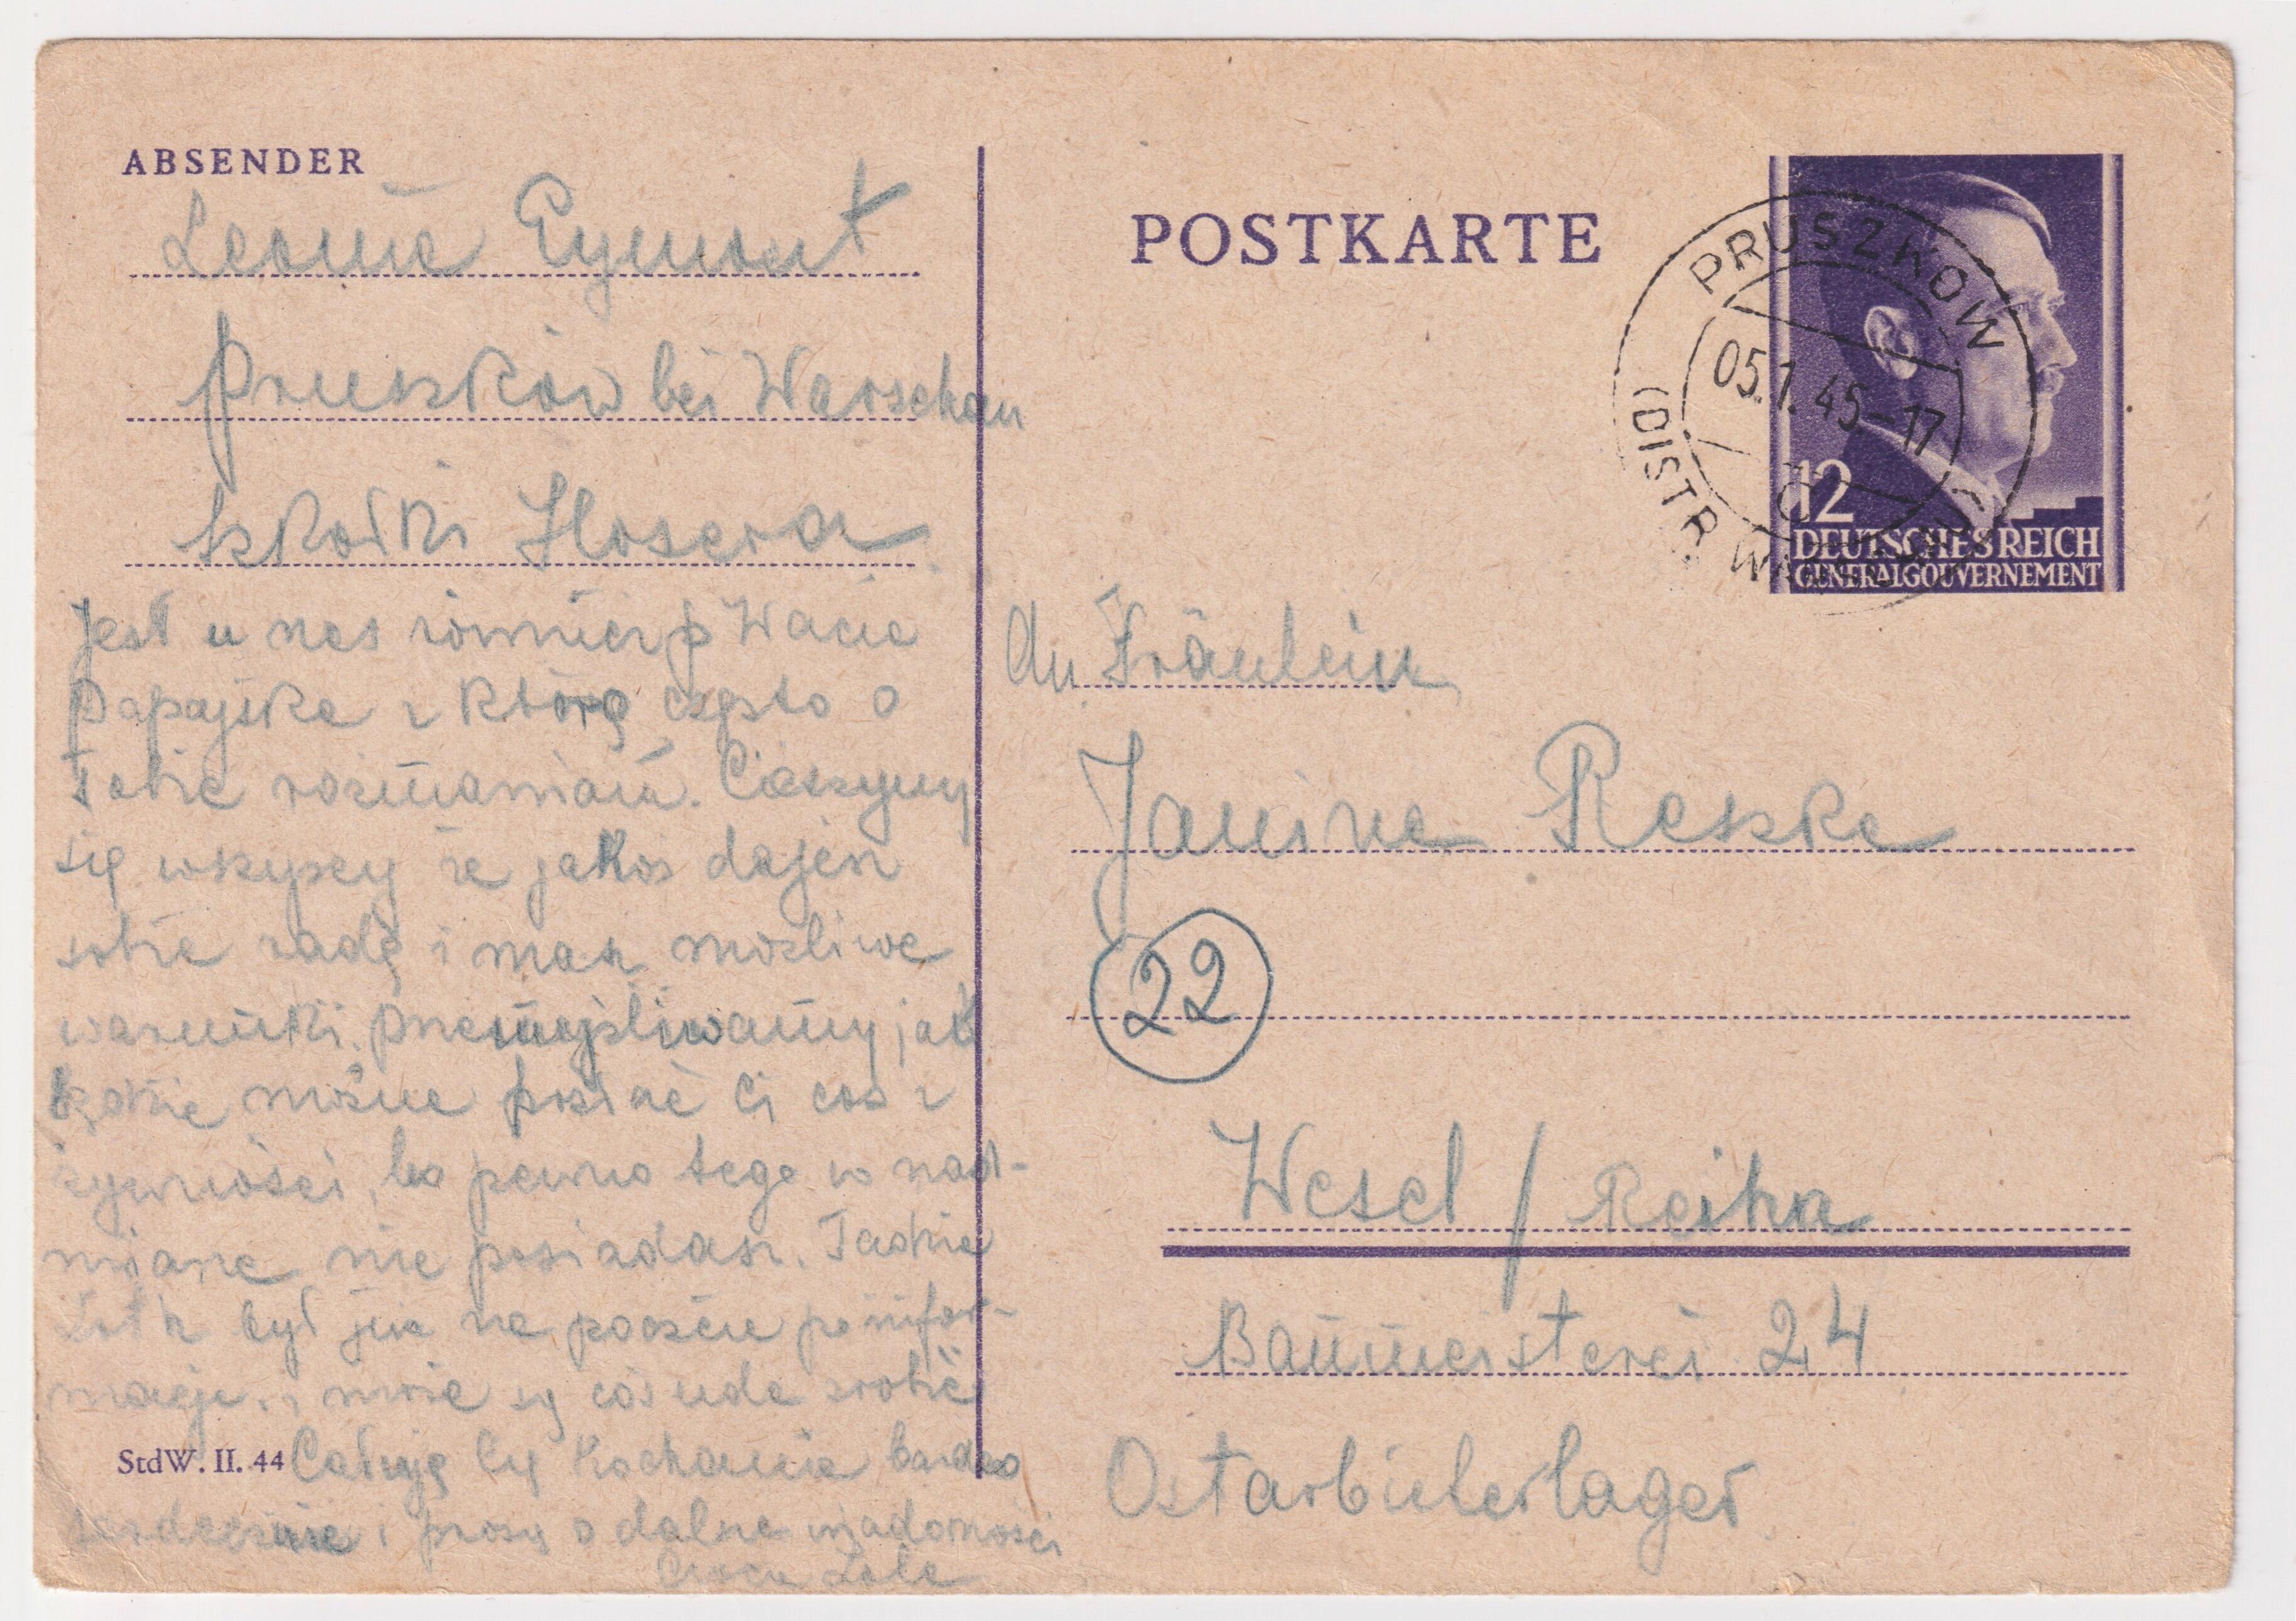 ABSENDER
Leonie Eymont
Pruszków bei Warschau
Szkółki Hosera
Jest u nas również p Wacia
Papajska z którą często o
Tobie rozmawiam. Cieszymy
się wszyscy że jakoś dajesz
sobie radę i masz możliwe
warunki. Przemyśliwamy jak
można posłać Ci coś z
żywności, bo pewno tego w nad-
miarze nie posiadasz. Tadzio
był już na poczcie po infor-
macje i może się coś uda zrobić
StdW. II. 44 Całuję Cię Kochanie bardzo
serdecznie i proszę o dalsze wiadomości
Ciocia Lola
POSTKARTE
PRUSZKOW
05.1.45-17
(DISTR
12
DEUTSCHES REICH
GENERALGOUVERNEMENT
An Fräulein
Janina Reszke
22
Wesel / Reihn
Baumeisterei 24
Ostarbieterlager